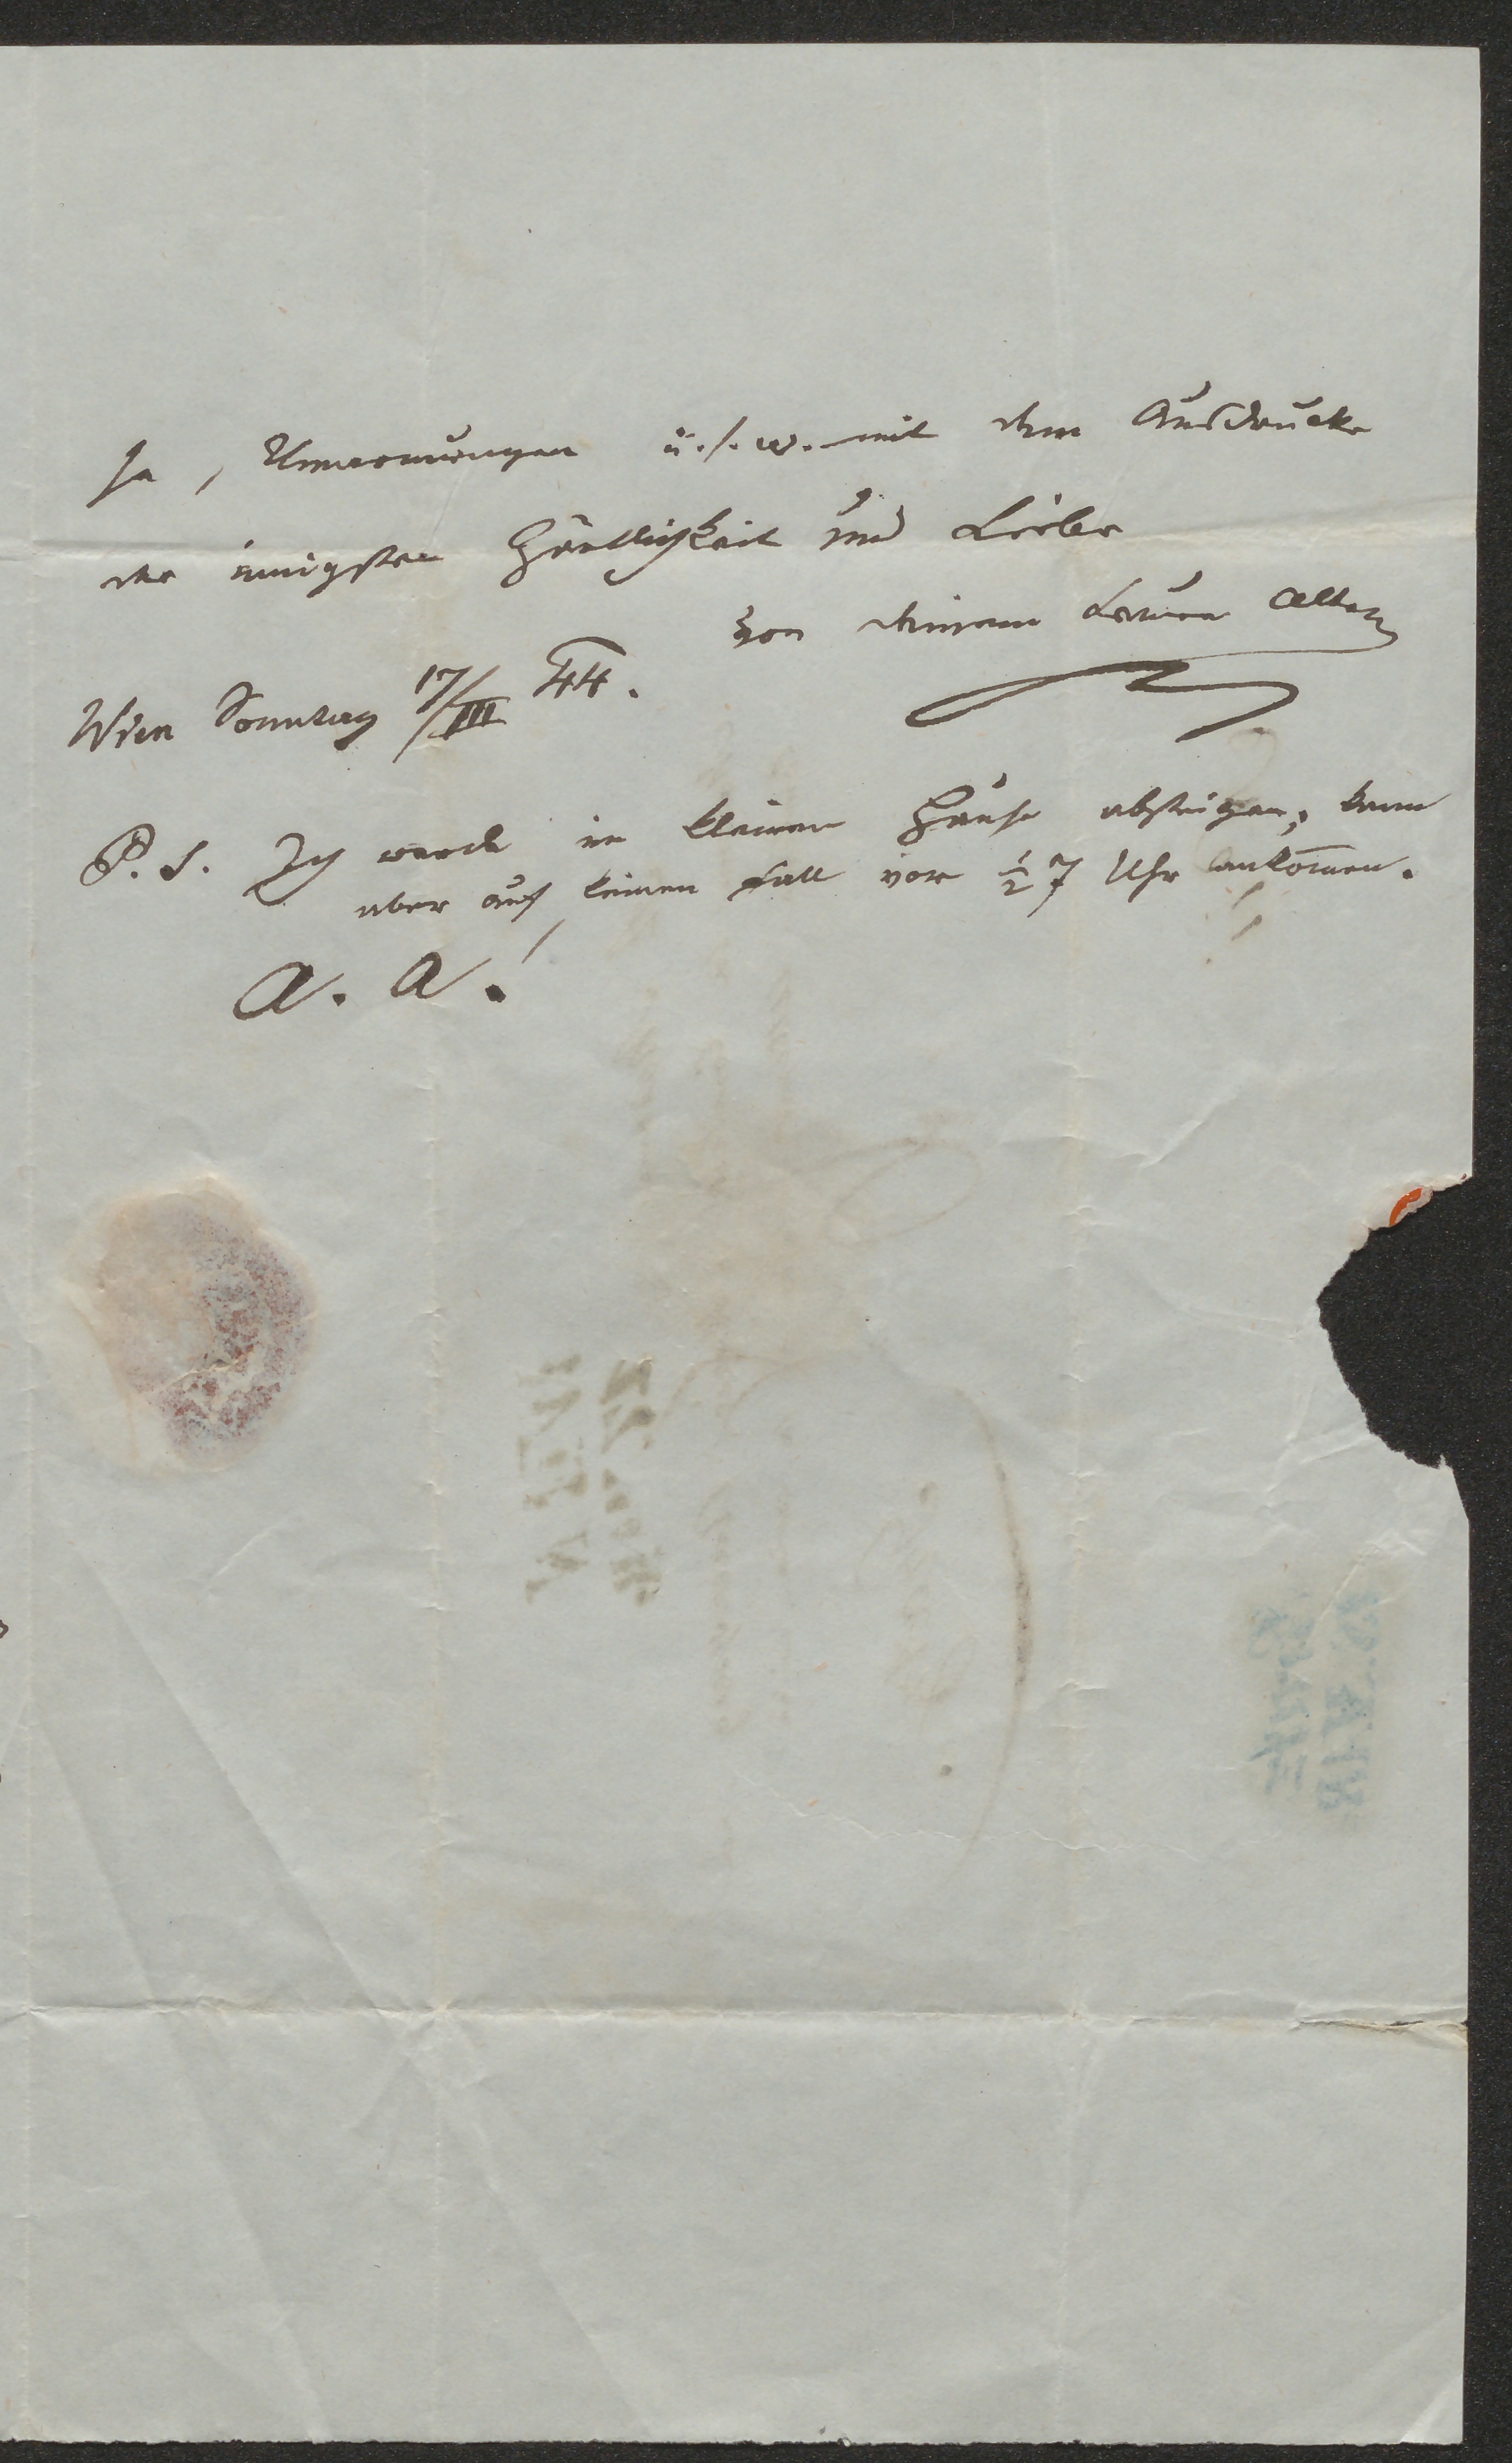 se, Umarmungen u.s.w. mit dem Ausdrucke
der innigsten Zärtlichkeit und Liebe
von deinem treuen Alten
Wien Sonntag 17/III 44.
P.S. Ich werde im kleinen Hause absteigen, kann
aber auf keinen Fall vor ½ 7 Uhr ankom̄en.
A. A.!